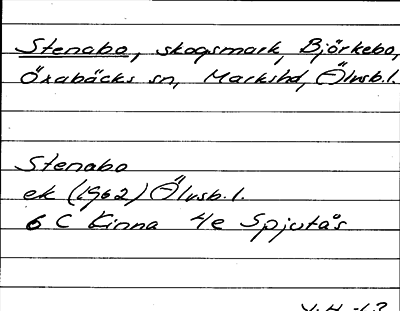 Stenabo, skogsmark, Björkebo,
Öxabäcks sn, Markshd, Älvsb.l.
Stenabo
ek (1962) Älvsb.l.
6 C Kinna 4e Spjutås